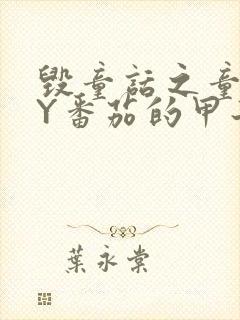 毁童话之童
Y番茄的甲
葉永棠